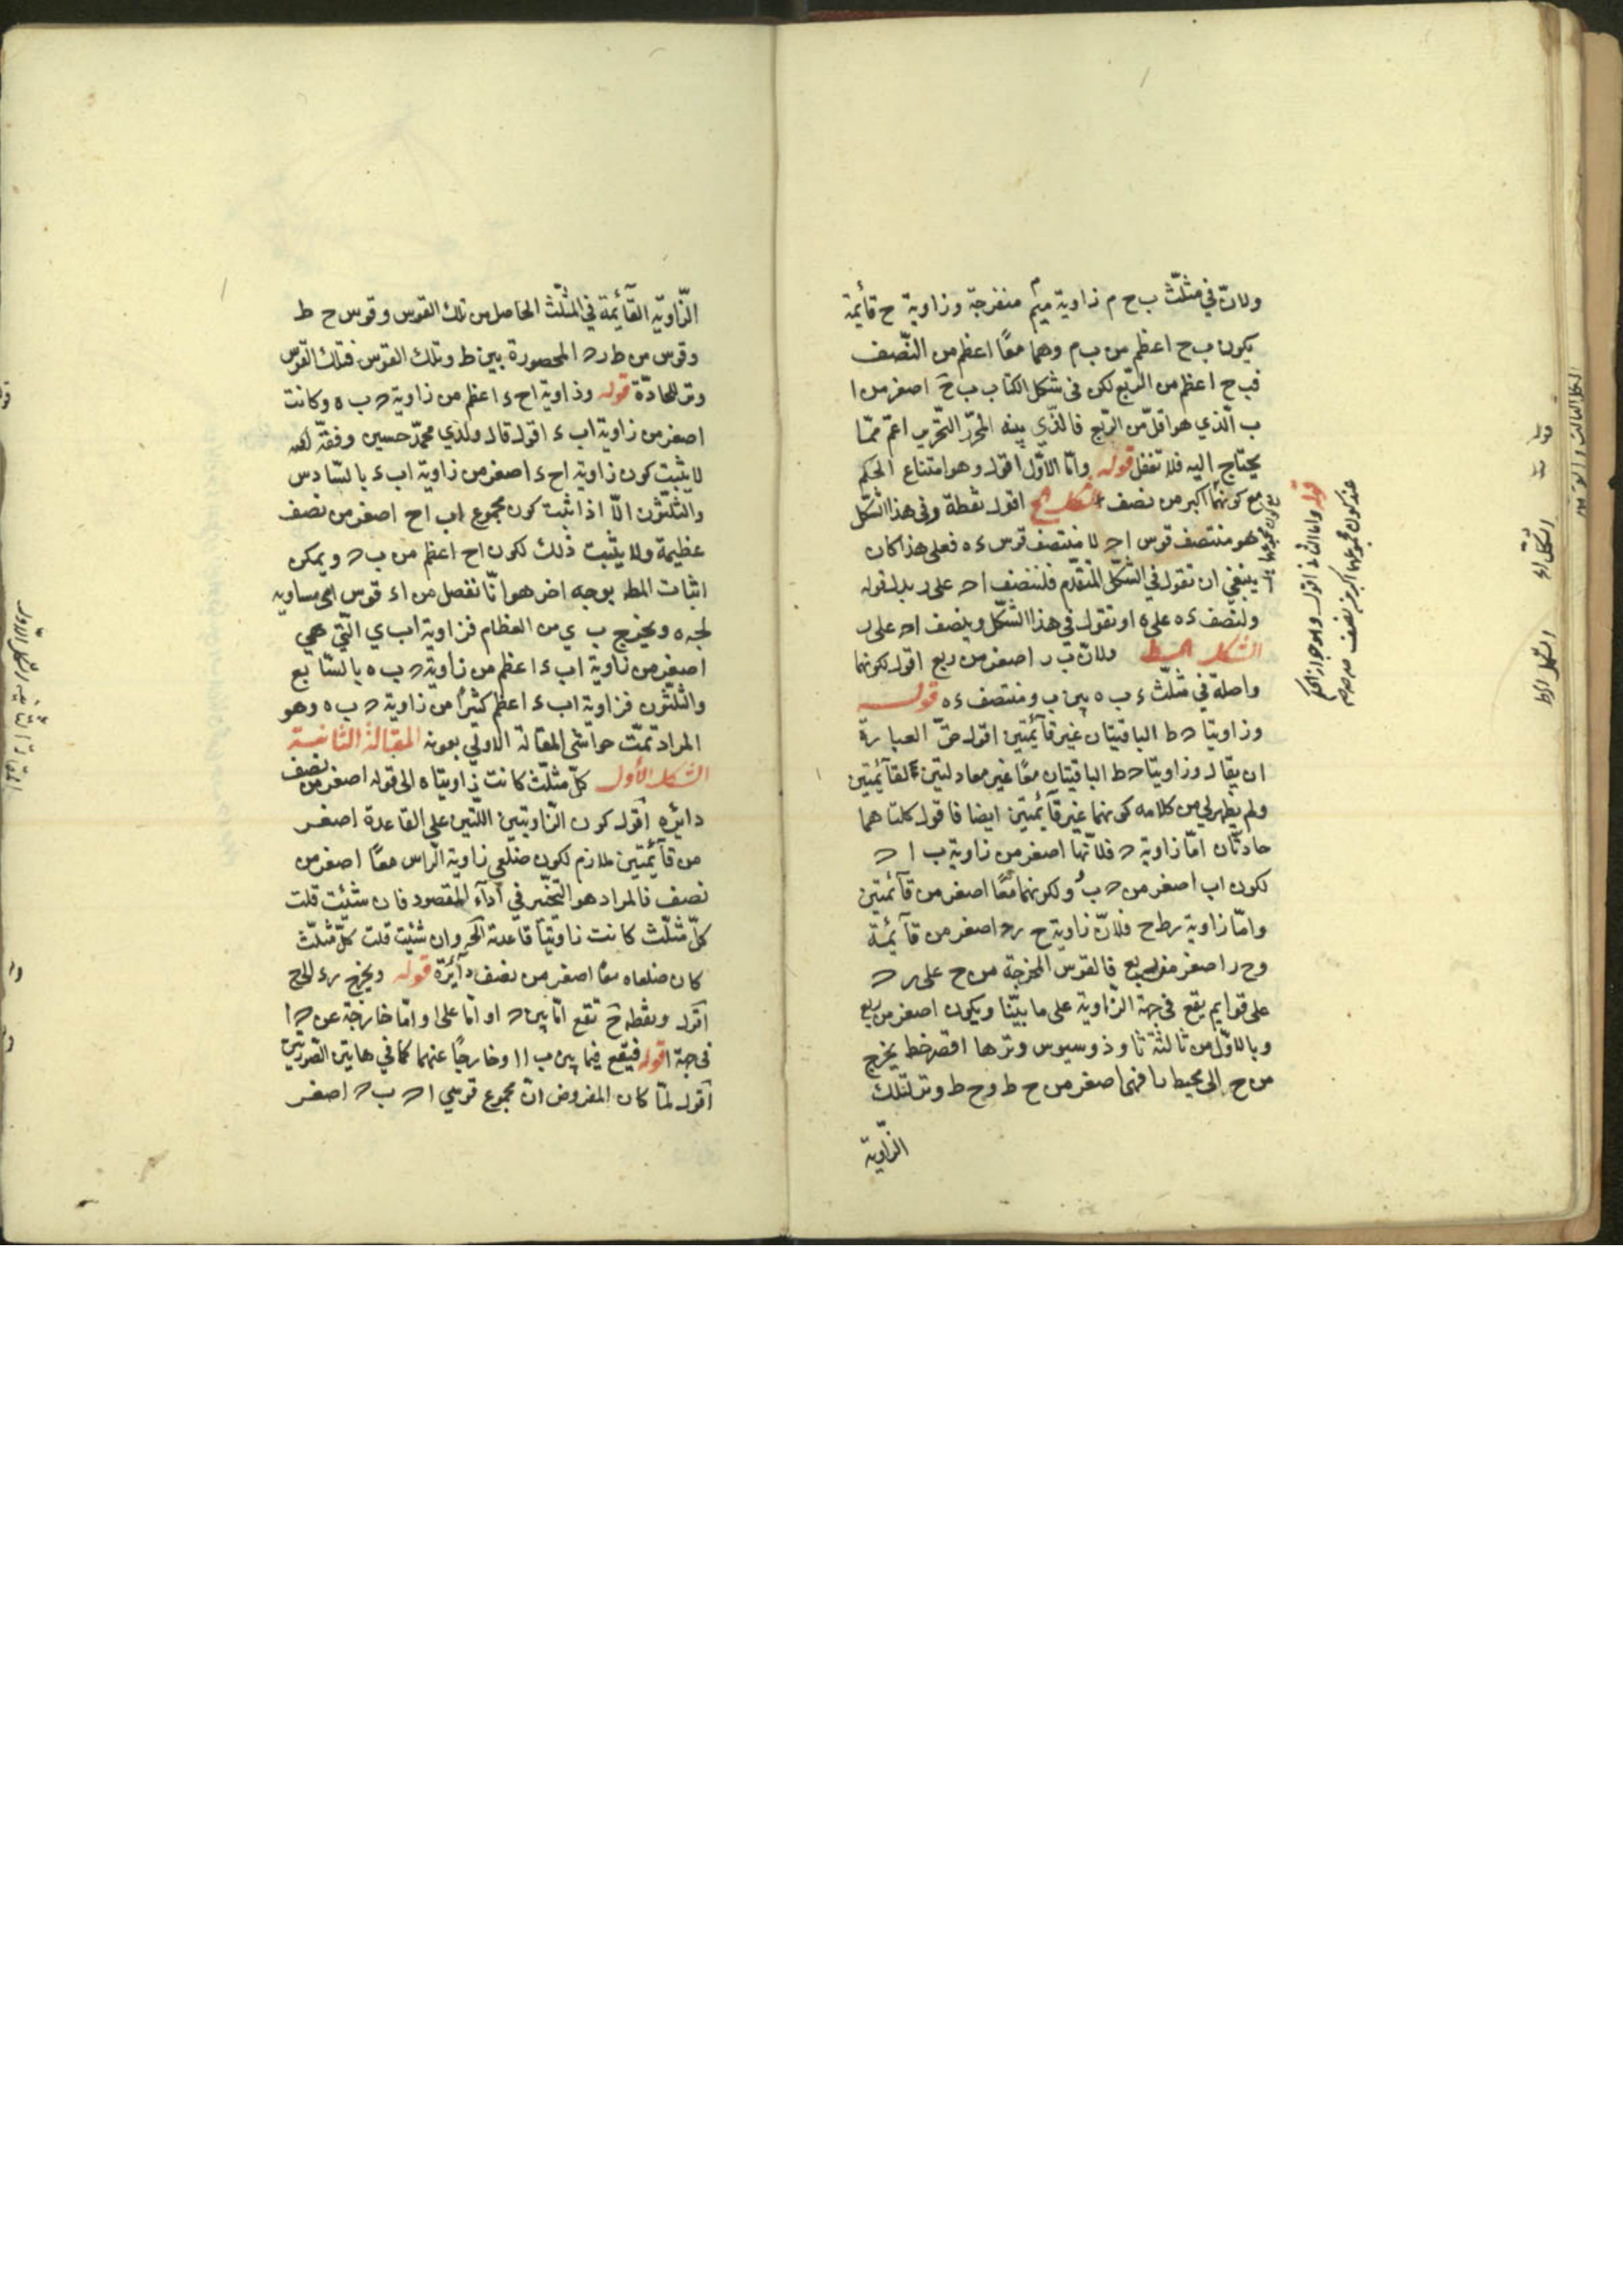 ولانّ في مثلّث ب ح م زاوية ميم منفرجة وزاوية ح قائمة
يكون ب ح اعظم من ب م وهما معًا اعظم من النّصف
فب ح اعظم من الربع لكن في شكل الكتاب ب ح اصغر من ا
ب الّذي هو اقلّ من الربع فالّذي بينه المحرّر التحرير اعمّ ممّا
يحتاج اليه فلا تغفل قوله وامّا الاوّل اقول وهو امتناع الحكم
مع كونهما اكبر من نصف الشكل اقول نقطة و في هذا الشكل
هو منتصف قوس ا ح لا منتصف قوس ء ه فعلى هذا كان
ينبغي ان تقول في الشكل المتقدّم فلننصف ا ح على ر بدل قوله
ولنصف ء ه على ه او تقول في هذا الشكل وينصف ا ح على ر
الشكل ولانّ ب ر اصغر من ربع اقول لكونها
واصلة في مثلّث ء ب ه بين ب ومنتصف ء ه قوله
وزاويتا ح ط الباقيتان غير قائمتين اقول حقّ العبارة
ان يقال وزاويتا ح ط الباقيتان معًا غير معادلتين لقائمتين
ولم يظهر لي من كلامه كونهما غير قائمتين ايضا فاقول كلتاهما
حادتان امّا زاوية ح فلانّها اصغر من زاوية ب ا ح
لكون اب اصغر من ح ب ولكونهما معًا اصغر من قائمتين
وامّا زاوية ر ط ح فلانّ زاوية ح ر ح اصغر من قائمة
وح ر اصغر من ربع فالقوس المخرجة من ح على ر ح
على قوايم يقع في جهة الزّاوية على ما بيّنّا ويكون اصغر من ربع
وبالاوّل من ثالثة ثاوذوسيوس وترها اقصر خط يخرج
من ح الى محيط فهما اصغر من ح ط وح ط وتر لتلك
الزّاوية
قوله وامّا الثاني اقول وهو جواز الحكم
عند كون مجموعهما اكبر من نصف
الزّاوية القائمة في المثلّث الحاصل من تلك القوس وقوس ح ط
وقوس من ط ر ح المحصورة بين ط وتلك القوس فتلك القوس
وتر للحادّة قوله وزاوية ا ح ء اعظم من زاوية ح ب ه وكانت
اصغر من زاوية اب ء اقول قال ولدي محمّد حسين وفقه الله
لا يثبت كون زاوية ا ح ء اصغر من زاوية اب ء بالسّادس
والثلثون الّا اذا ثبت كون مجموع اب ا ح اصغر من نصف
عظيمة ولا يثبت ذلك لكون ا ح اعظم من ب ح ويمكن
اثبات المط بوجه اخر هو انّا نفصل من اء قوس اى مساوية
لجه ه ويخرج ب ي من العظام فزاوية اب ي الّتي هي
اصغر من زاوية اب ء اعظم من زاوية ح ب ه بالسّابع
والثلثون فزاوية اب ء اعظم كثيرًا من زاوية ح ب ه وهو
المراد تمّت حواشي المقالة الاولى بعونه المقالة الثانية
الشكل الأول كلّ مثلّث كانت زاويتاه الى قوله اصغر من نصف
دائره اقول كون الزّاويتين اللّتين على القاعدة اصغر
من قائمتين ملازم لكون ضلعي زاوية الراس معًا اصغر من
نصف فالمراد هو التخيّر في آداء المقصود فان شئت قلت
كلّ مثلّث كانت زاويتا قاعدته الخ وان شئت قلت كلّ مثلّث
كان ضلعاه معًا اصغر من نصف دآئرة قوله ويخرج
اقول ونقطة ح تقع امّا بين ح ا وامّا على ا وامّا خارجة عن ح ا
في جهة ا قوله فيقع فيما بين ب ا ا وخارجًا عنهما كما في هاتين الصّورتين
اقول لمّا كان المفروض انّ مجموع قوسي ا ح ب ح اصغر